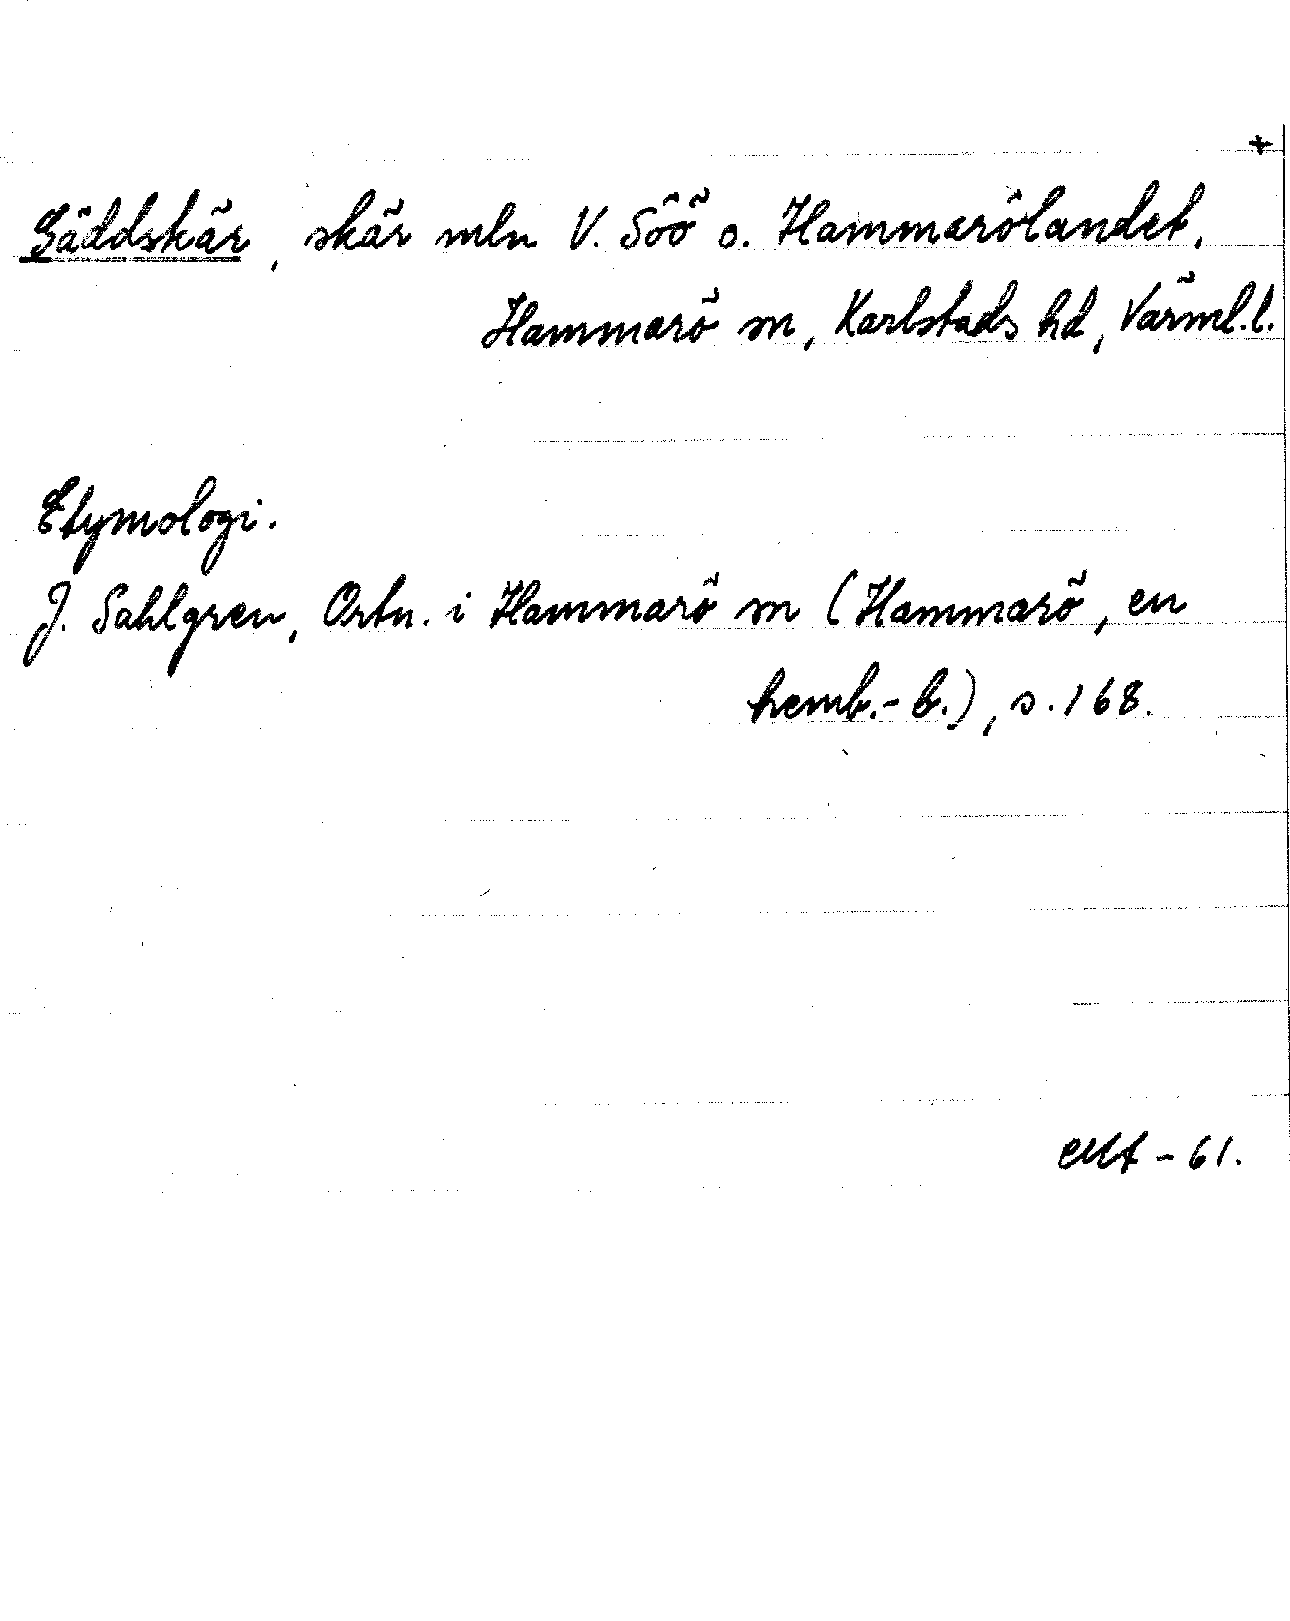 +
Gäddskär, skär mln V. Söö o. Hammarölandet,
Hammarö sn, Karlstads hd, Värml.l.
Etymologi.
J. Sahlgren, Ortn. i Hammarö sn (Hammarö, en
hemb.-b.), s. 168.
-61.